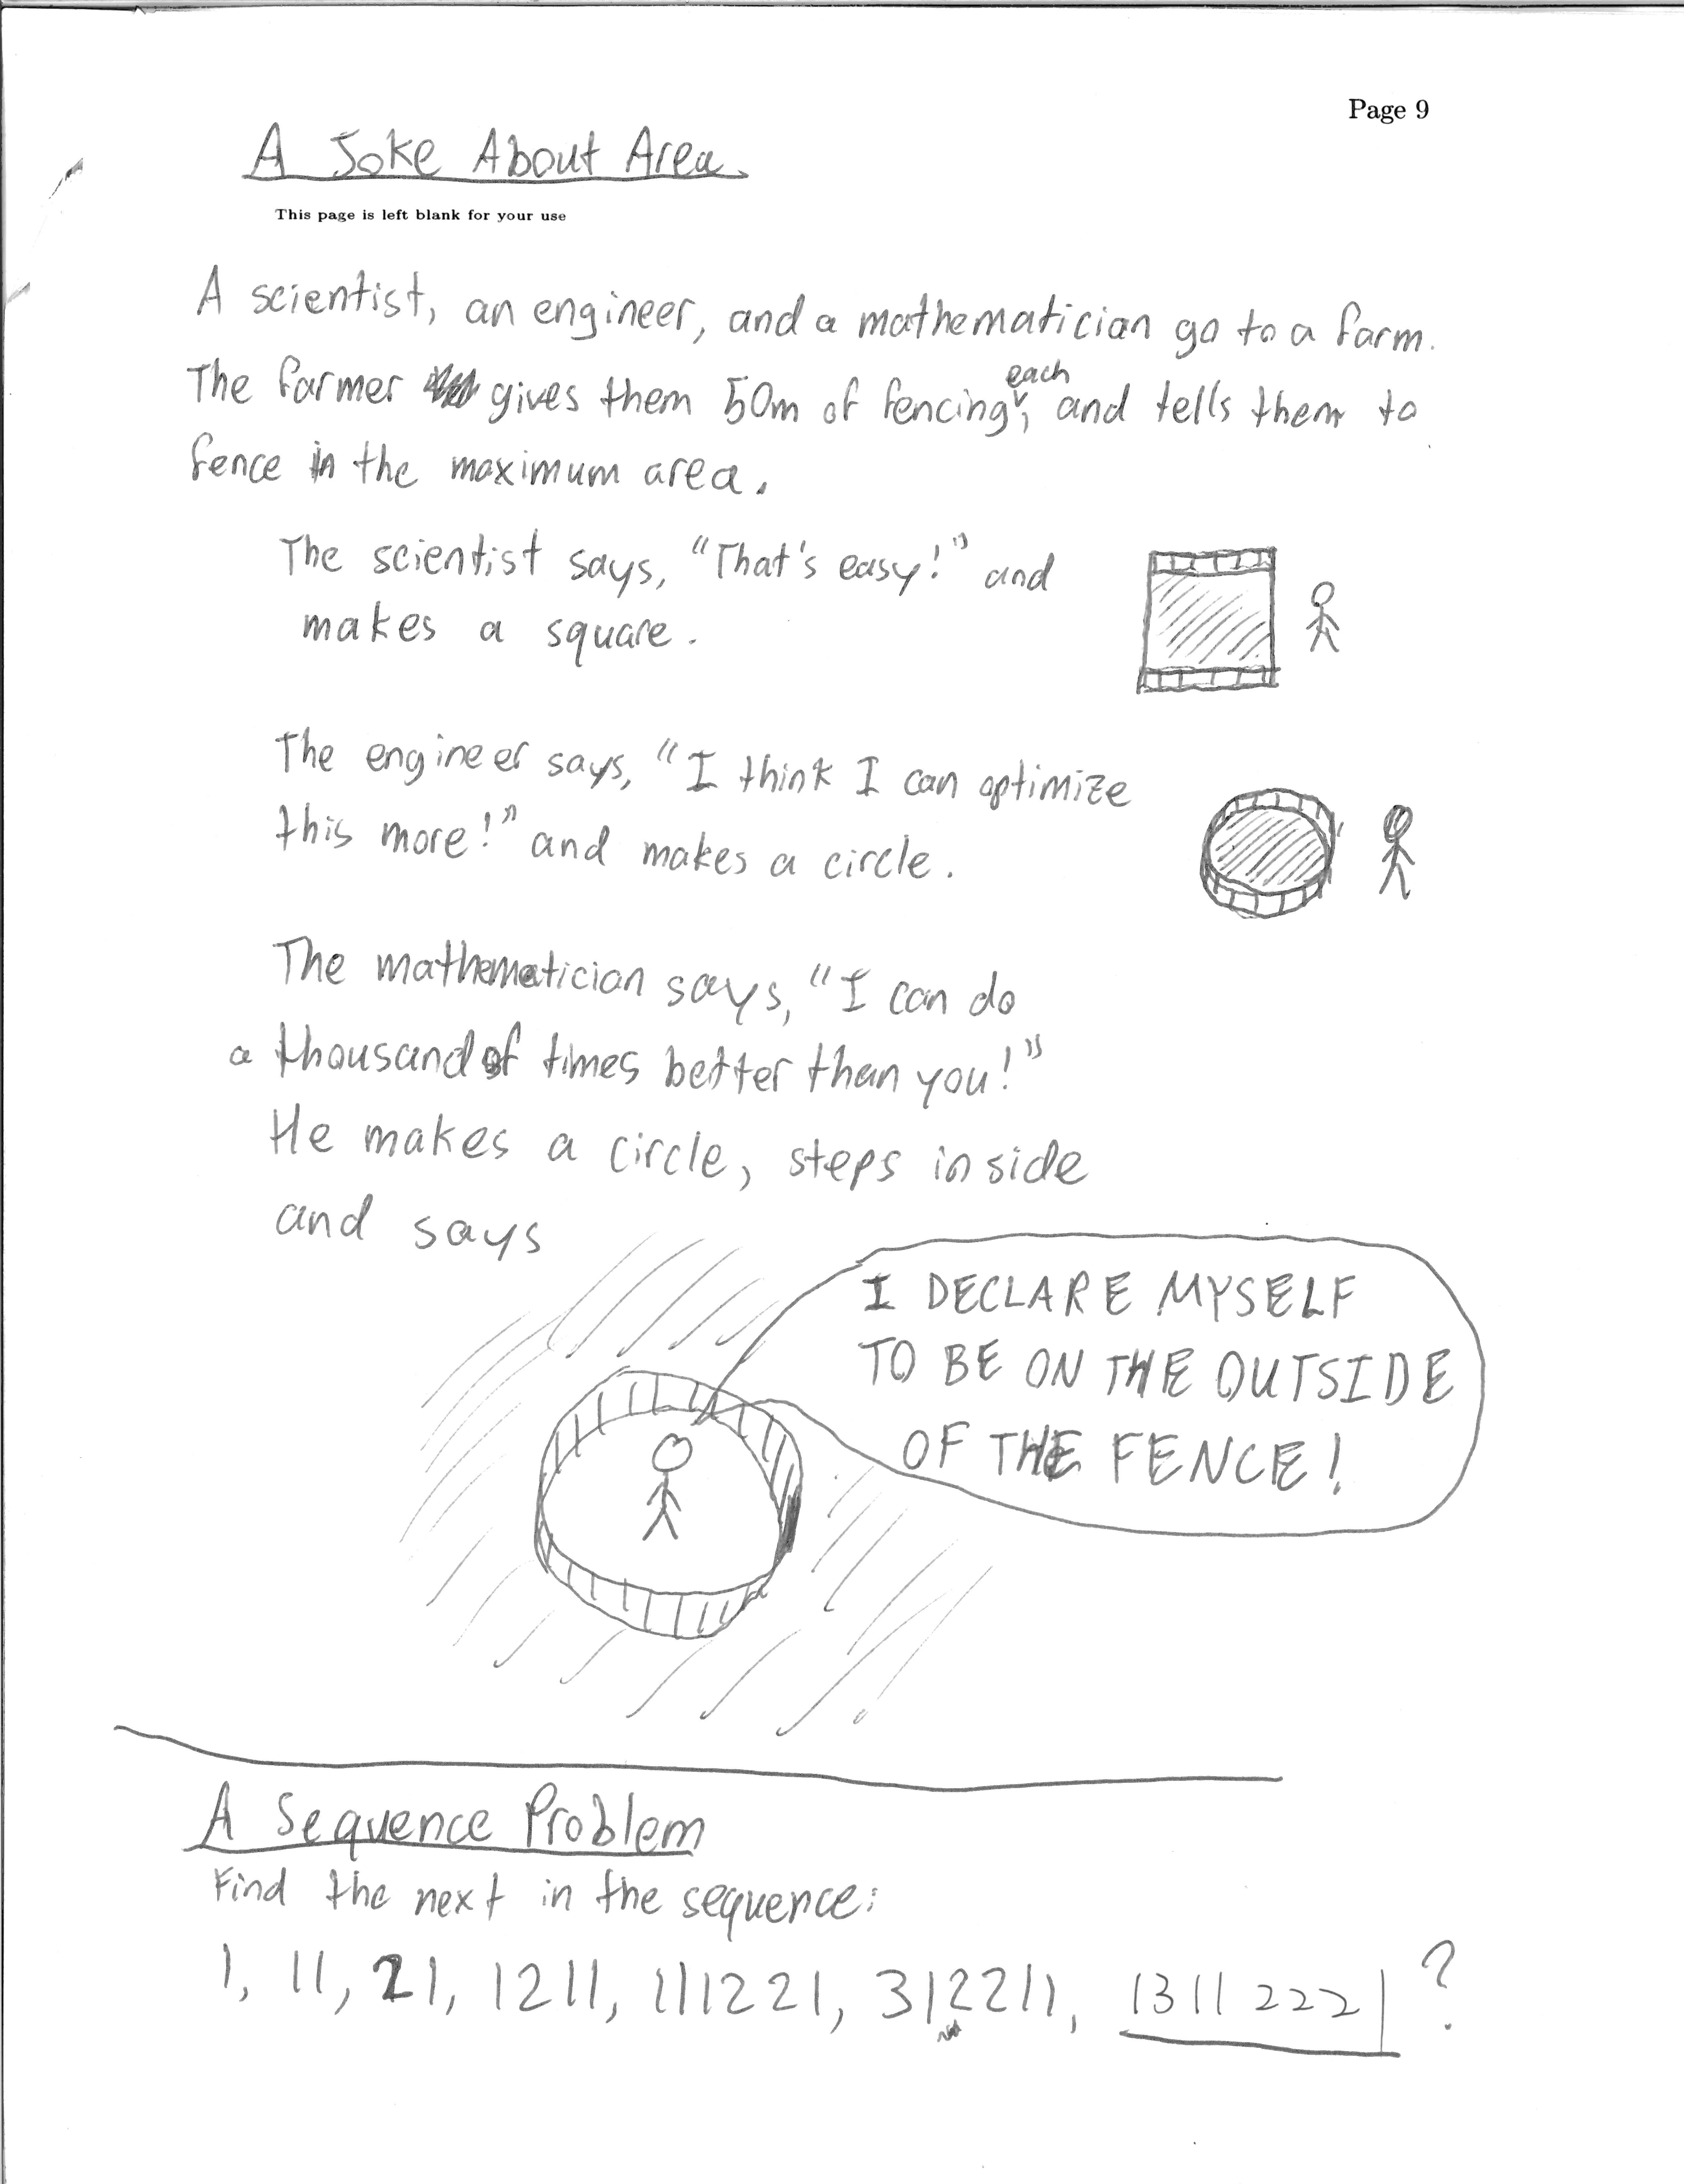 Page 9
A Joke About Area
This page is left blank for your use
A scientist, an engineer, and a mathematician go to a farm.
The farmer gives them 50m of fencing each, and tells them to
fence in the maximum area.
The scientist says, "That's easy!" and
makes a square.
The engineer says, "I think I can optimize
this more!" and makes a circle.
The mathematician says, "I can do
a thousand of times better than you!"
He makes a circle, steps inside
and says
I DECLARE MYSELF
TO BE ON THE OUTSIDE
OF THE FENCE!
A Sequence Problem
Find the next in the sequence:
1, 11, 21, 1211, 111221, 312211, 13112221?